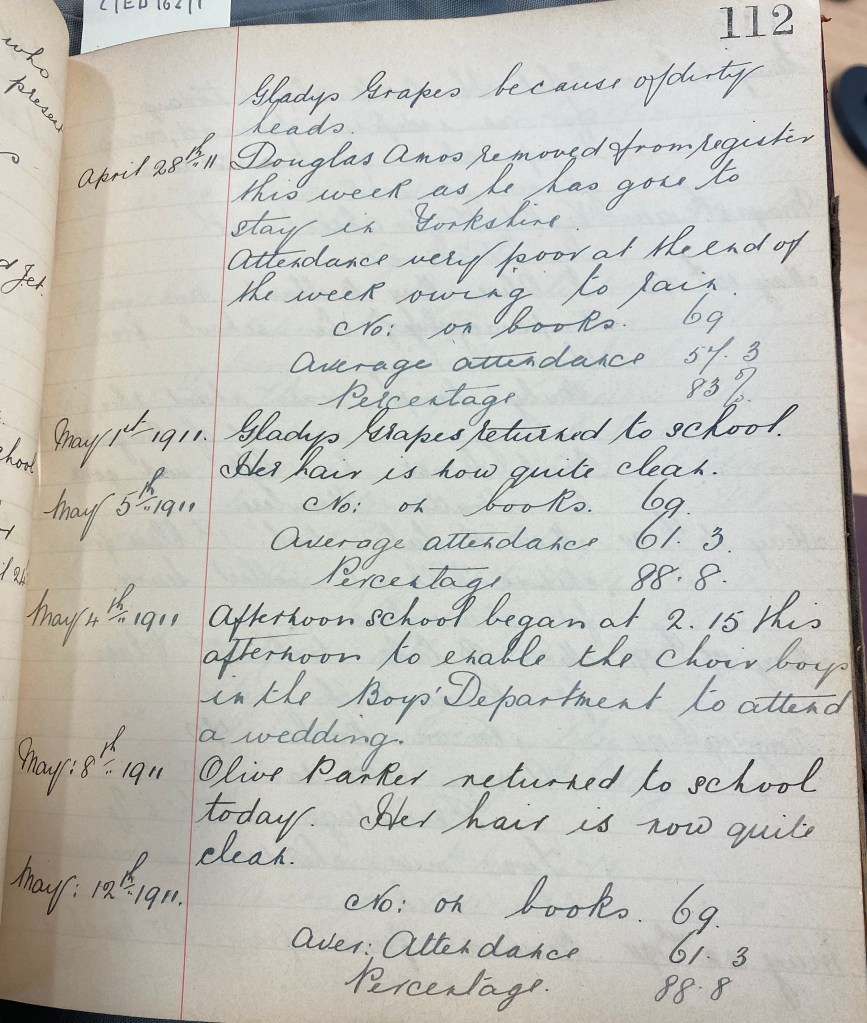 C/ED 162/1
112
who
present
Gladys Grapes because of dirty
heads.
April 28th 11 Douglas Amos removed from register
this week as he has gone to
stay in Yorkshire.
Attendance very poor at the end of
the week owing to rain.
No: on books. 69
Average attendance 57. 3
Percentage 83%.
May 1st 1911. Gladys Grapes returned to school.
Her hair is now quite clean.
May 5th 1911 No: on books. 69.
Average attendance 61. 3.
Percentage 88. 8.
May 4th 1911 Afternoon school began at 2. 15 this
afternoon to enable the choir boys
in the Boys' Department to attend
a wedding.
May: 8th 1911 Olive Parker returned to school
today. Her hair is now quite
clean.
May: 12th 1911. No: on books. 69.
Aver: Attendance 61. 3
Percentage. 88. 8